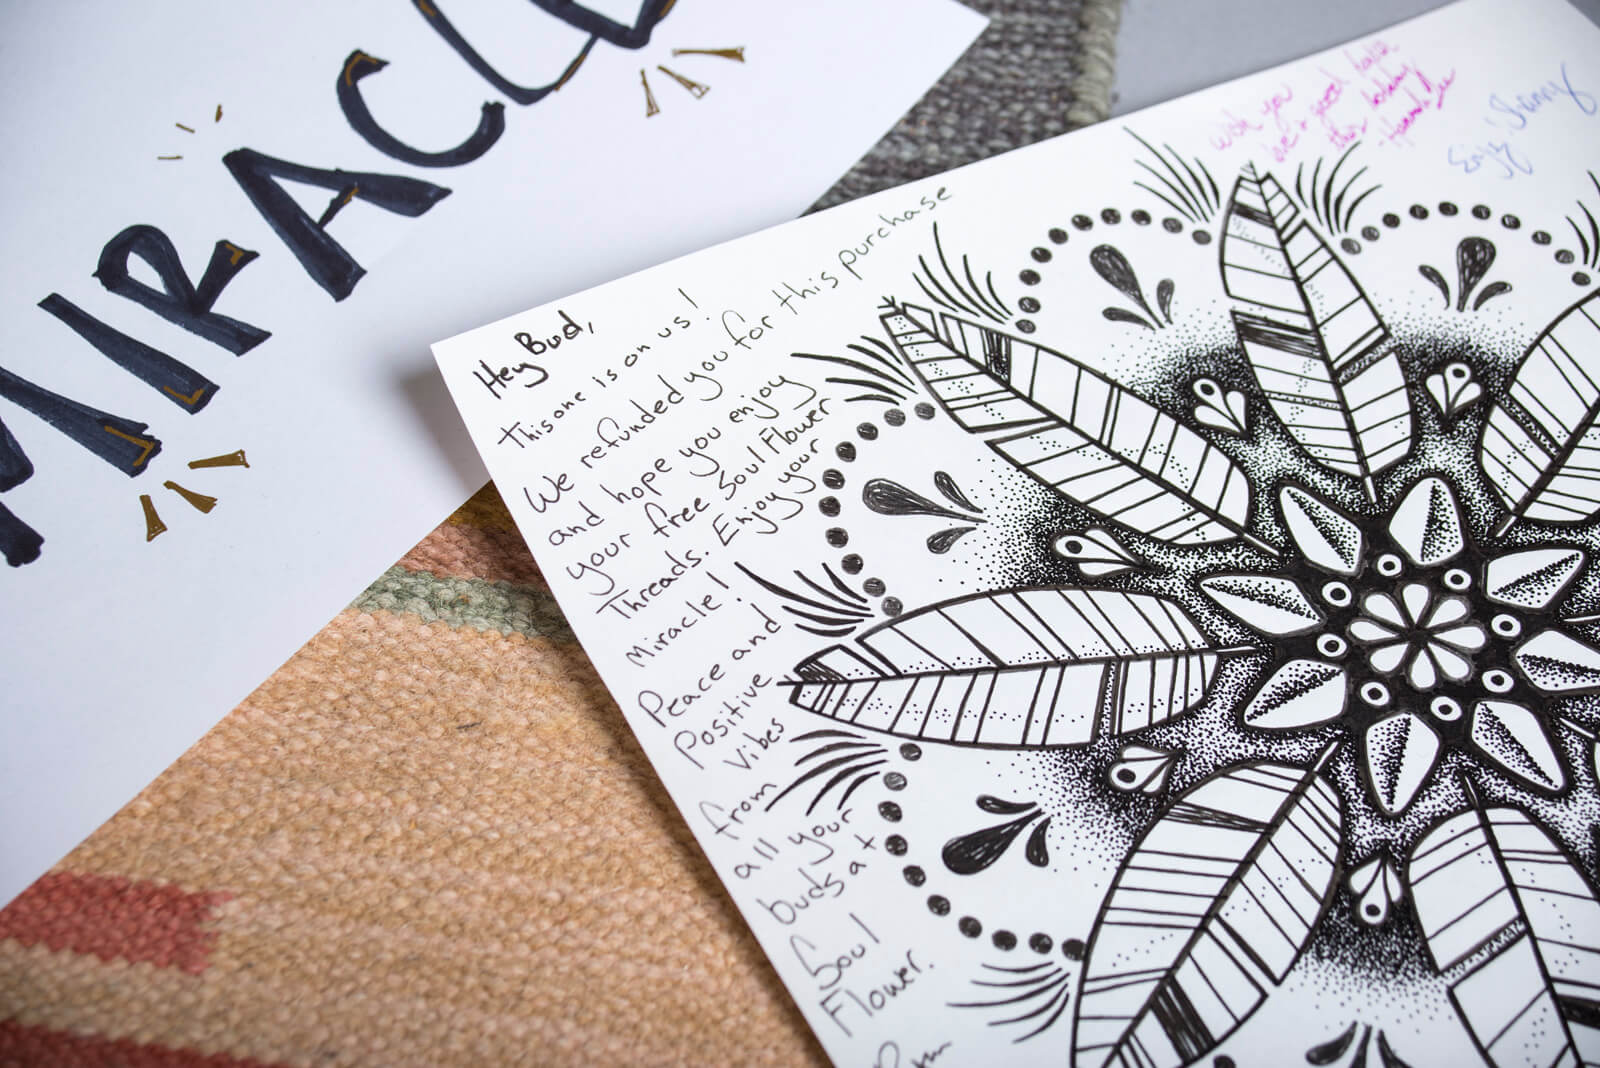 MIRACLE
Hey Bud,
This one is on us!
We refunded you for this purchase
and hope you enjoy
your free Soul Flower
Threads. Enjoy your
Miracle!
Peace and
Positive
Vibes
from
all your
buds at
Soul
Flower.
wish you
good
this holiday
Enjoy!